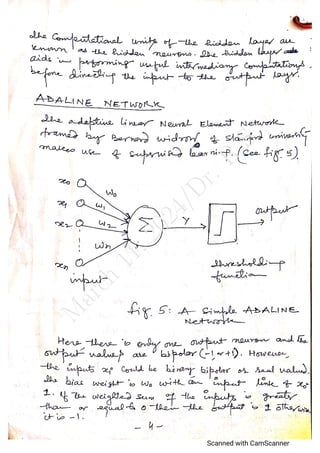 The Computational units of the hidden layer are
known as the hidden neurons. The hidden layer
aids in performing useful intermediary computations
before directing the input to the output layer.
ADALINE NETWORK
The adaptive linear Neural Element Network
framed by Bernard widrow of Stanford university
makes use of supervised learning. (See fig 5)
x0 w0
x1 w1
x2 w2
xn wn
Σ
y
output
input
thresholding
function
fig. 5: A Simple ADALINE
Network
Here there is only one output neuron and the
output values are bipolar (-1 or +1). However,
the inputs xi could be binary bipolar or real valued.
The bias weight is w0 with an input link of x0
1. If the weighted sum of the inputs is greater
than or equal to 0 then the output is 1 otherwise
it is -1.
- 4 -
March 2024/Dr.
Scanned with CamScanner